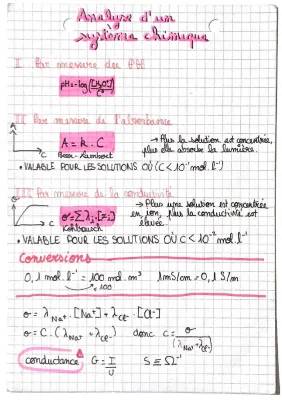 Analyse d'un
système chimique
I Par mesure du pH
pH = -log([H₃O⁺]/C°)
II Par mesure de l'absorbance
A
A = k . C
→ Plus la solution est concentrée,
plus elle absorbe la lumière.
C
Beer-Lambert
• VALABLE POUR LES SOLUTIONS OÙ (C < 10⁻² mol.l⁻¹)
III Par mesure de la conductivité
σ
σ = Σ λᵢ.[Xᵢ]
→ Plus une solution est concentrée
en ion, plus la conductivité est
élevée.
C
Kohlrausch
• VALABLE POUR LES SOLUTIONS OÙ C < 10⁻² mol.l⁻¹
Conversions
0,1 mol.l⁻¹ = 100 mol.m³ 1mS/cm = 0,1 S/m
σ = λNa⁺ . [Na⁺] + λCl⁻ . [Cl⁻]
σ = C . (λNa⁺ + λCl⁻) donc c = σ/(λNa⁺ + λCl⁻)
conductance G = I/U S ≡ Ω⁻¹